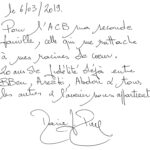 le 6/03/2019.
Pour l'ACB ma seconde
famille, celle qui me rattache
à mes racines de cœur.
20 ans de fidélité déjà entre
Ben, Arezki, Abdel, tous
les autres à l'avenir nous appartient